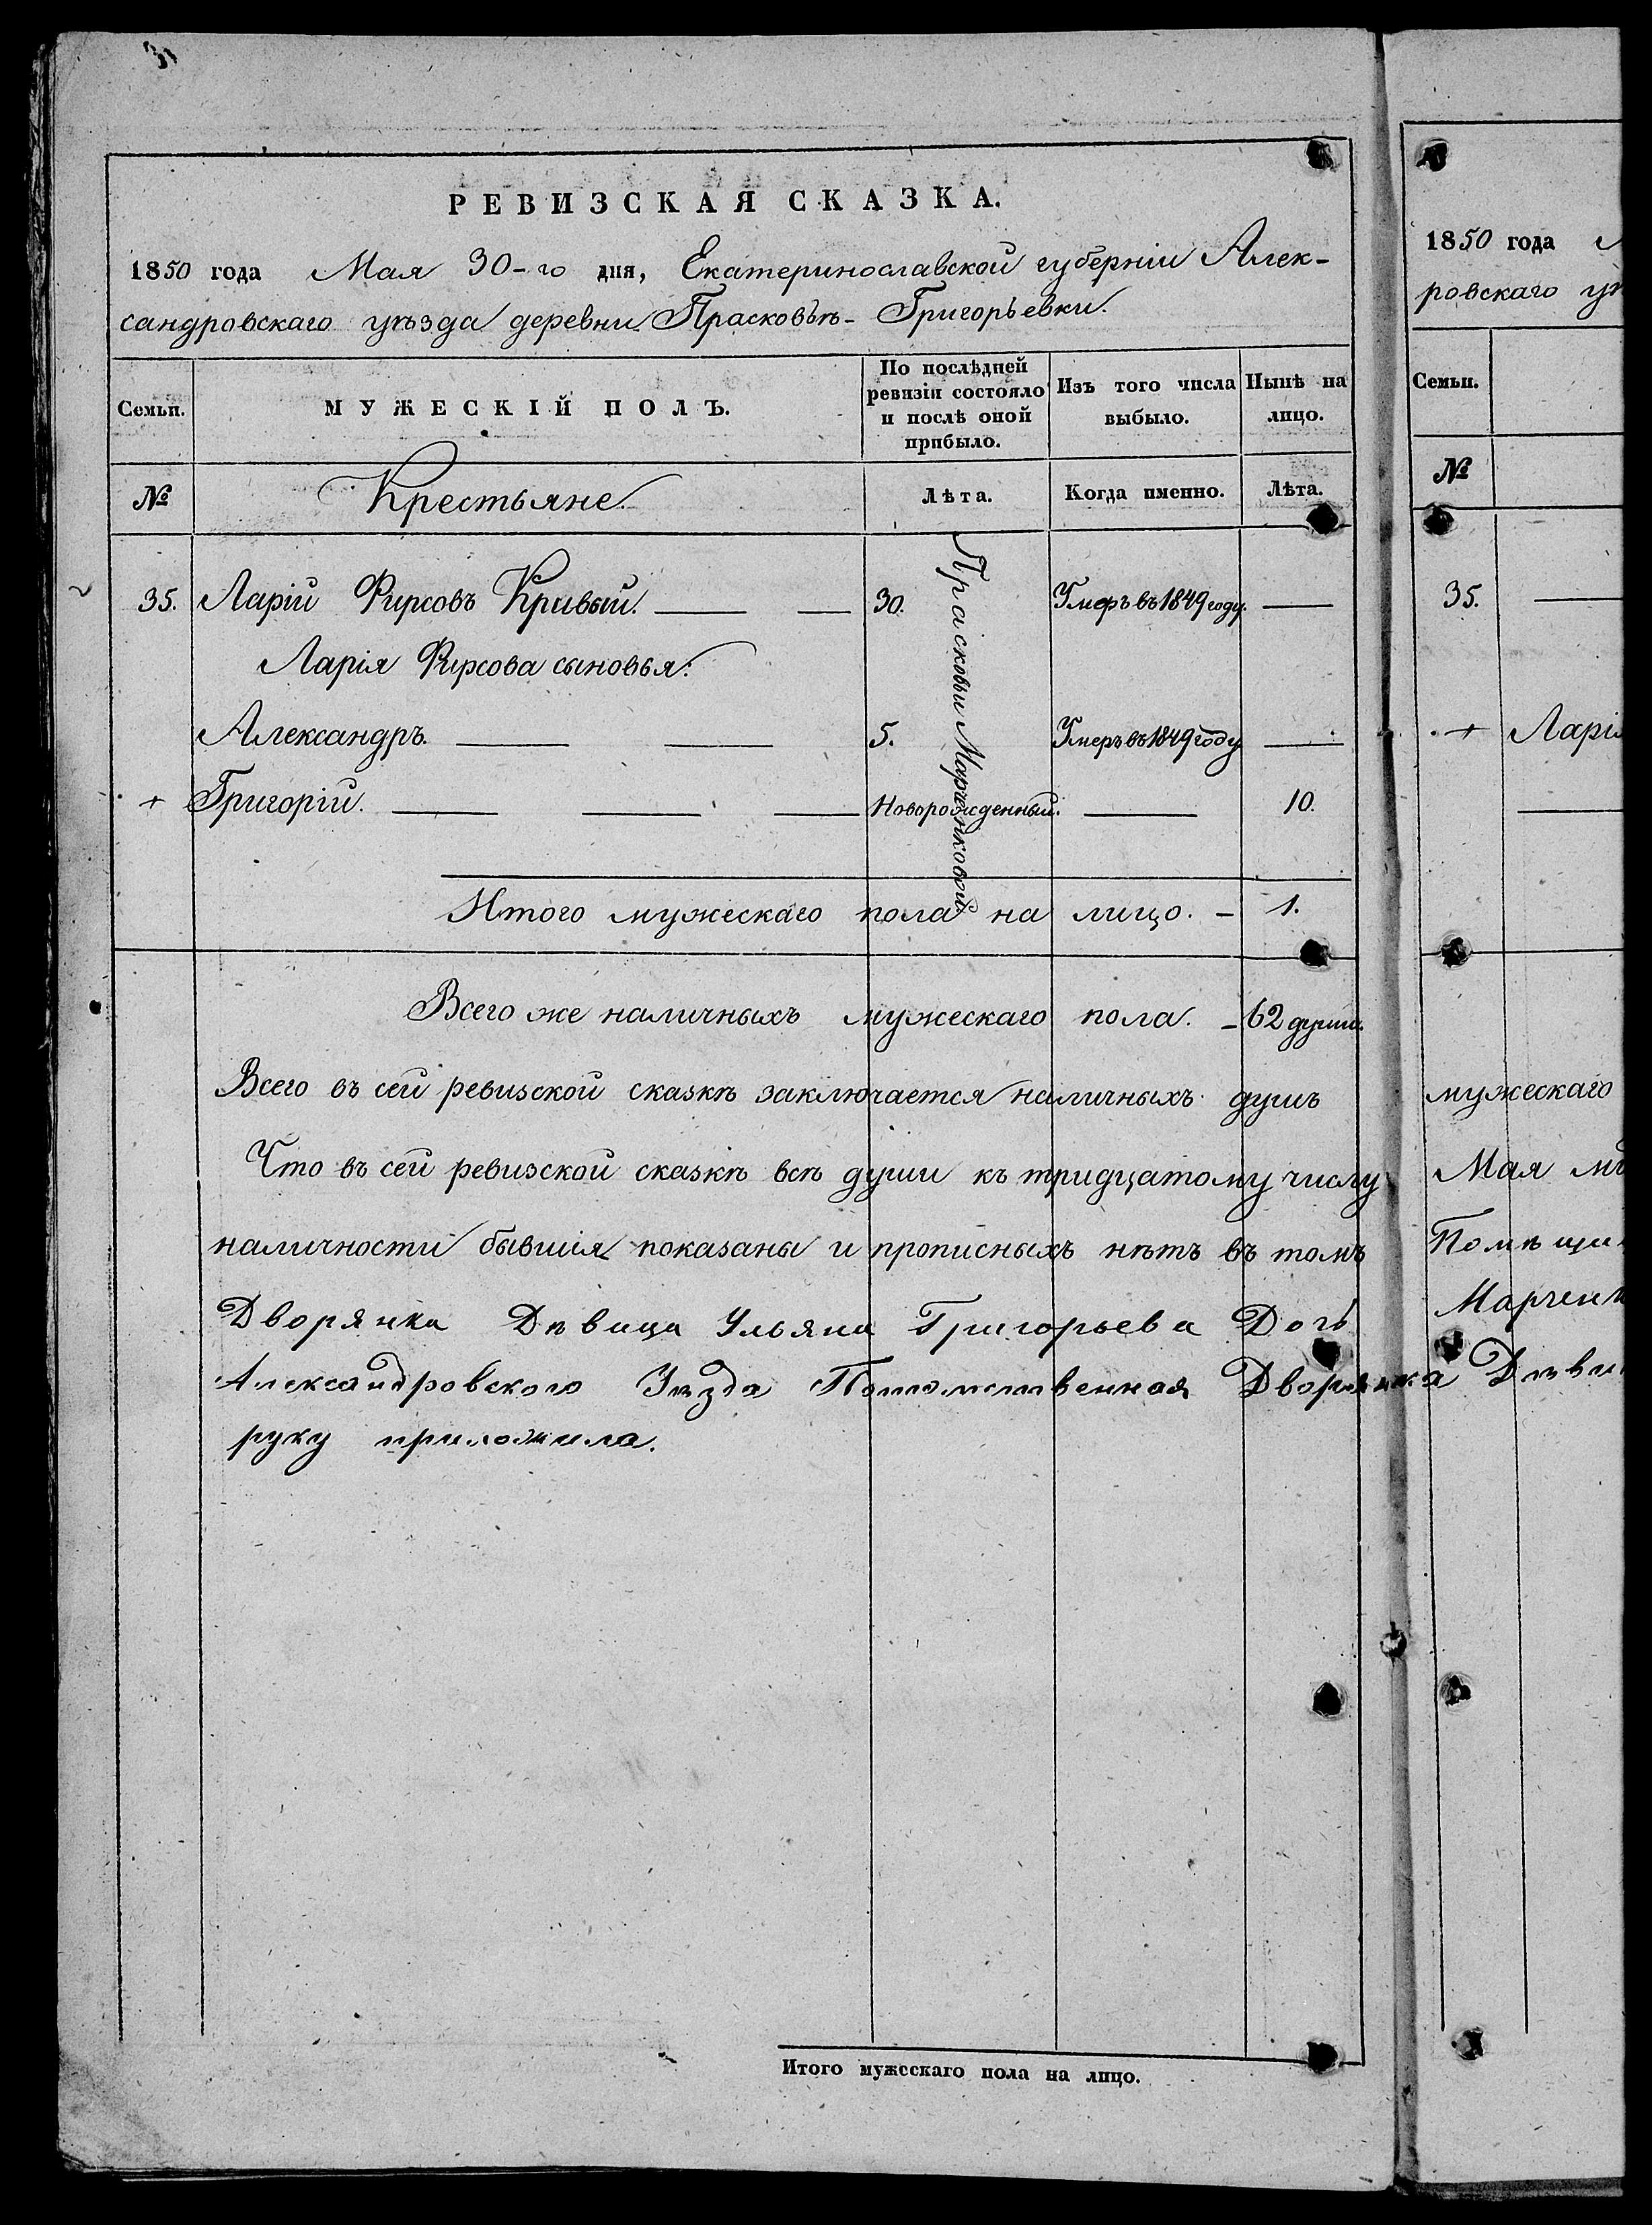 РЕВИЗСКАЯ СКАЗКА.
1850 года Мая 30-го дня, Екатеринославской губерніи Алек-
сандровскаго уѣзда деревни Прасковѣѣ- Григорьевки.
Семьи.
МУЖЕСКІЙ ПОЛЪ.
По послѣдней ревизіи состояло и послѣ оной прибыло.
Изъ того числа выбыло.
Нынѣ на лицо.
№ Крестьяне. Лѣта. Когда именно. Лѣта.
35. Ларій Фирсовъ Кривый. — — 30. Умеръ въ 1849 году. —
Ларія Фирсова сыновья:
Александръ. — — 5. Умеръ въ 1849 году —
+ Григорій. — — — Новорожденный. — 10.
Прасковьи Марченковой
Итого мужескаго пола на лицо. - 1.
Всего же наличныхъ мужескаго пола. - 62 души.
Всего въ сей ревизской сказкѣ заключается наличныхъ душъ
Что въ сей ревизской сказкѣ всѣ души къ тридцатому числу
наличности бывшія показаны и прописныхъ нѣтъ въ томъ
Дворянка Дѣвица Ульяна Григорьева Дочь
Александровского Уѣзда Потомственная Дворянка
руку приложила.
Итого мужескаго пола на лицо.
1850 года
ровскаго
Семьи.
№
35. —
+ Ларія
—
мужескаго
Мая